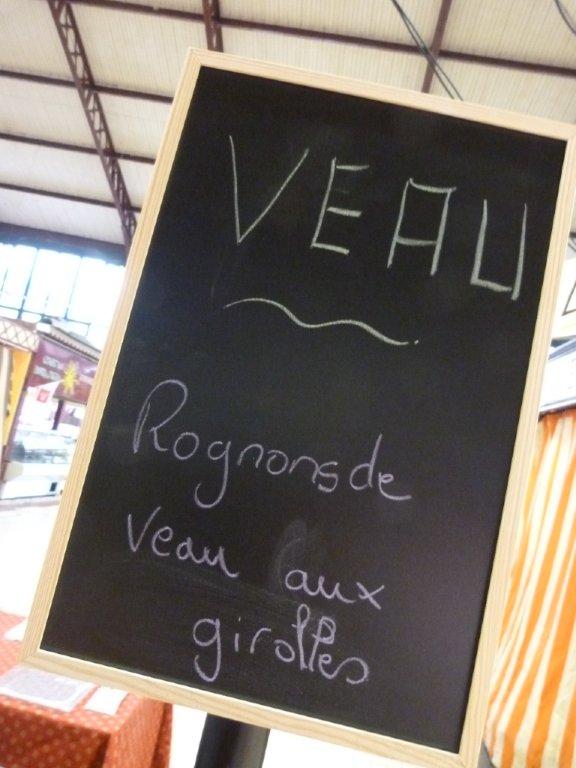 VEAU
Rognons de
Veau aux
girolles